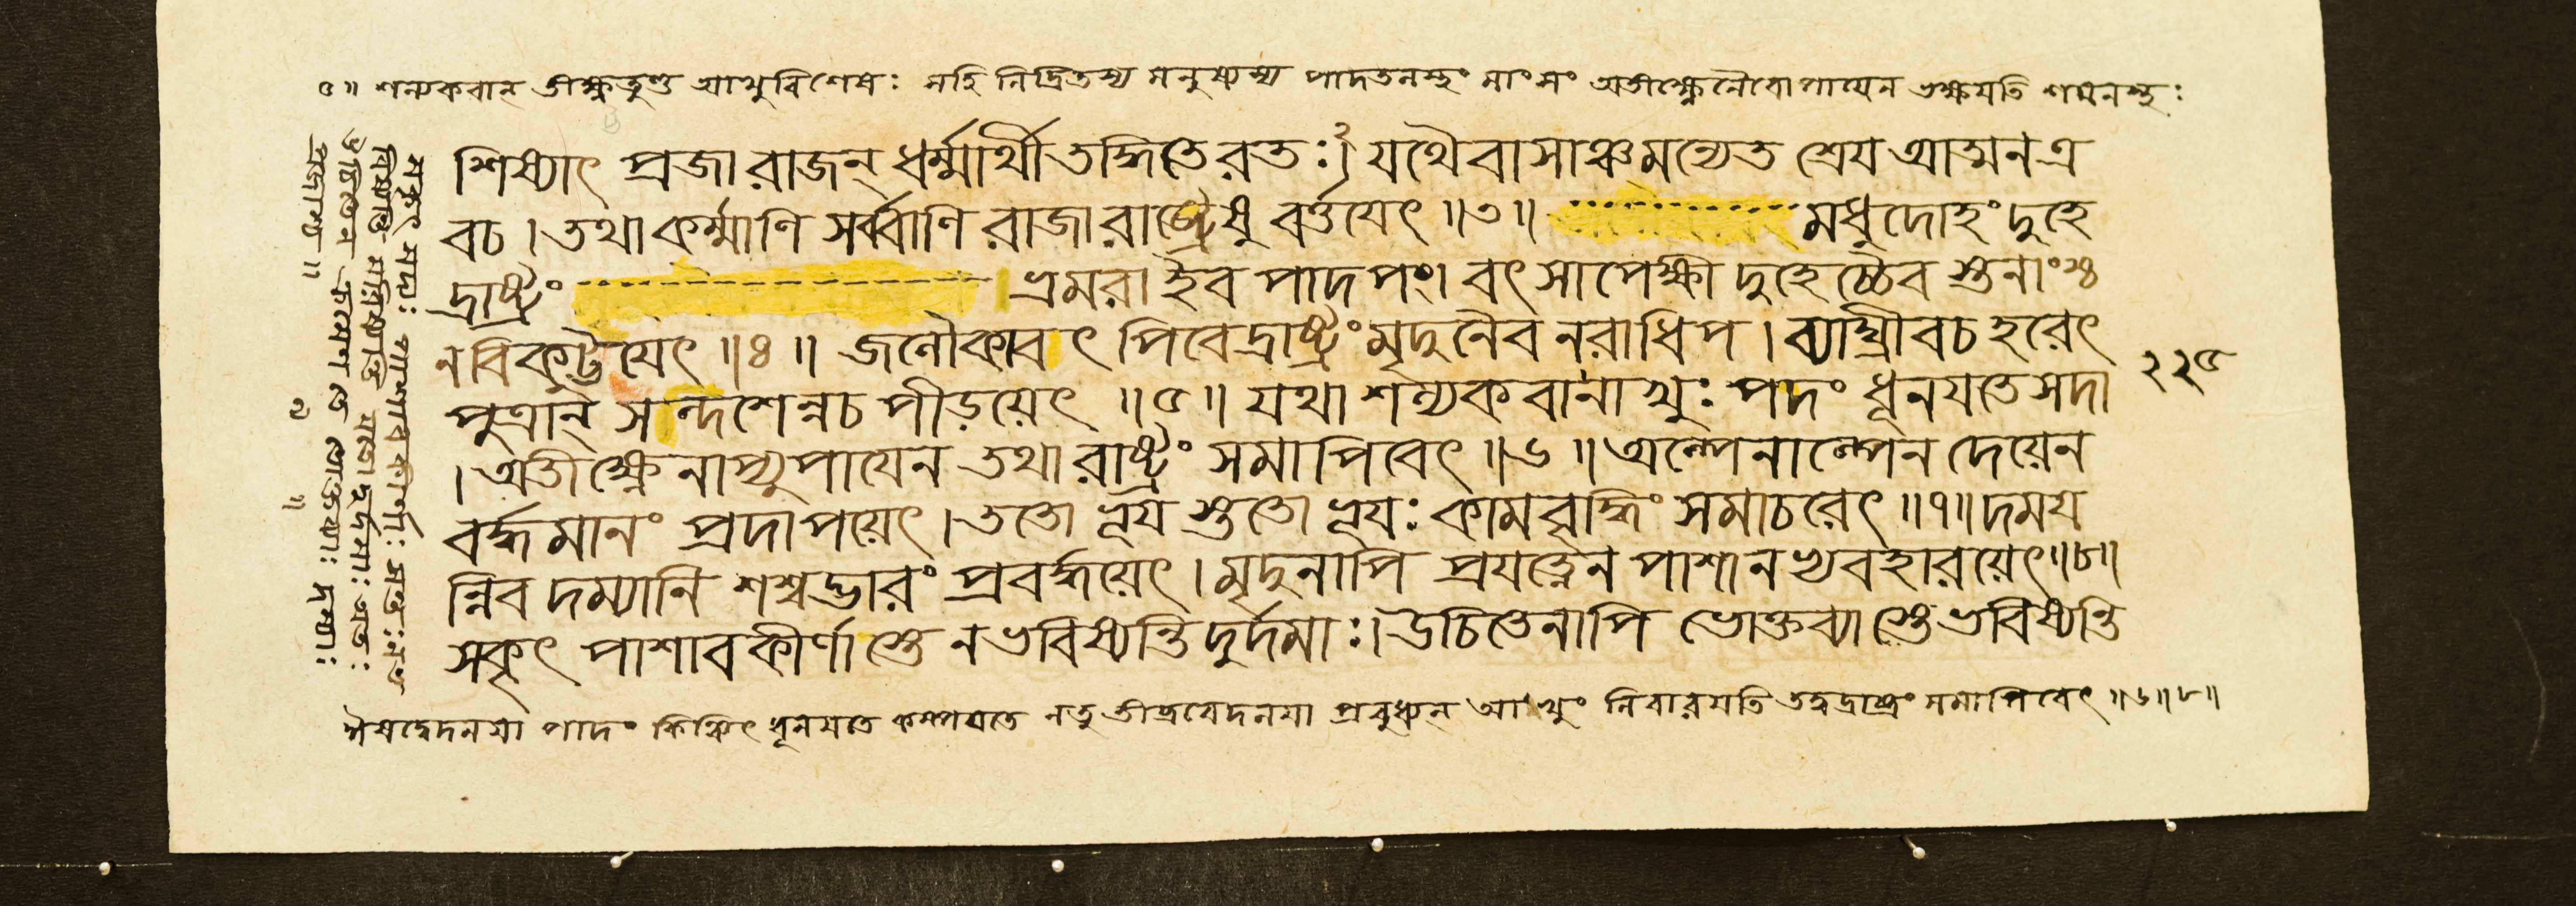 ৫॥ শল্যকবান্ তীক্ষ্ণতুণ্ড আখুবিশেষঃ নহি নিদ্রিতস্য মনুষ্যস্য পাদতলস্থং মাংসং অতীক্ষ্ণেনৈবোপায়েন ভক্ষয়তি
শিষ্যাৎ প্রজা রাজন্ ধর্ম্মার্থী তদ্ধিতে রতঃ।২ যথৈবাসাঞ্চ মন্যেত শ্রেয আত্মন এ
বচ। তথা কর্ম্মাণি সর্ব্বাণি রাজা রাষ্ট্রেষু বর্ত্তযেৎ॥৩॥ মধুদোহং দুহে
দ্রাষ্ট্রং। ভ্রমরা ইব পাদপং। বৎসাপেক্ষী দুহেচ্চৈব স্তনাংশ্চ
ন বিকুট্টযেৎ॥৪॥ জলৌকাবৎ পিবেদ্রাষ্ট্রং মৃদুনৈব নরাধিপ। ব্যাঘ্রীবচ হরেৎ
পুত্রান্ সন্দশেন্নচ পীড়য়েৎ॥৫॥ যথা শল্যকবানাখুঃ পদং ধূনযতে সদা
। অতীক্ষ্ণেনাভ্যুপাযেন তথা রাষ্ট্রং সমাপিবেৎ॥৬॥ অল্পেনাল্পেন দেয়েন
বর্দ্ধমানং প্রদাপয়েৎ। ততো ভূয স্ততো ভূযঃ কামবৃদ্ধিং সমাচরেৎ॥৭॥ দময
ন্নিব দম্যানি শশ্বদ্ভারং প্রবর্দ্ধয়েৎ। মৃদুনাপি প্রযত্নেন পাশানভ্যবহারয়েৎ॥৮॥
সকৃৎ পাশাবকীর্ণাস্তে ন ভবিষ্যন্তি দুর্দমাঃ। উচিতেনাপি ভোক্তব্যাস্তে ভবিষ্যন্তি
২২৫
ঈষদ্বেদনযা পাদং কিঞ্চিৎ ধূনযতে কম্পযতে নতু তীব্রবেদনযা প্রবুধ্যন্ আখুং নিবারযতি তদ্বদ্রাষ্ট্রং সমাপিবেৎ॥৬॥৮॥
সকৃৎ সদ্যঃ পাশাবকীর্ণাঃ সন্তঃ